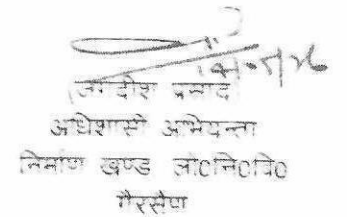 जगदीश प्रसाद
अधिशासी अभियन्ता
निर्माण खण्ड लो0नि0वि0
गैरसैण